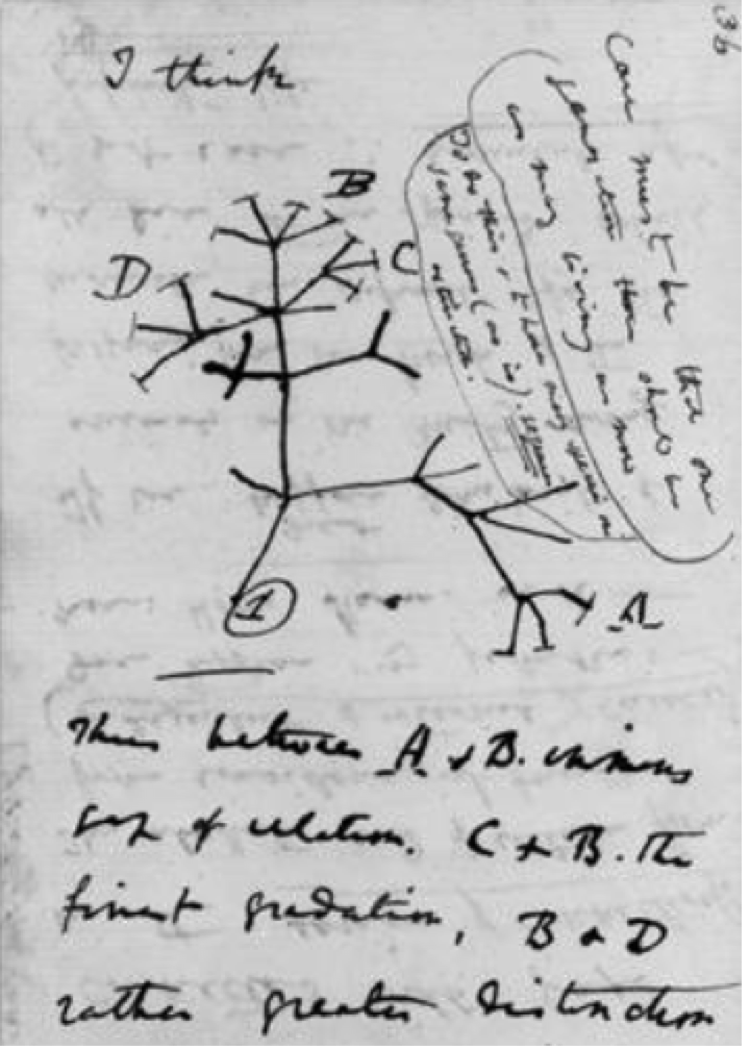 36
I think
Case must be that one
generation then should be
as many living as now
To do this & to have many species in
same genus (as is). requires
extinction.
B
C
D
1
A
Thus between A & B. immens
gap of relation. C & B. the
finest gradation, B & D
rather greater distinction